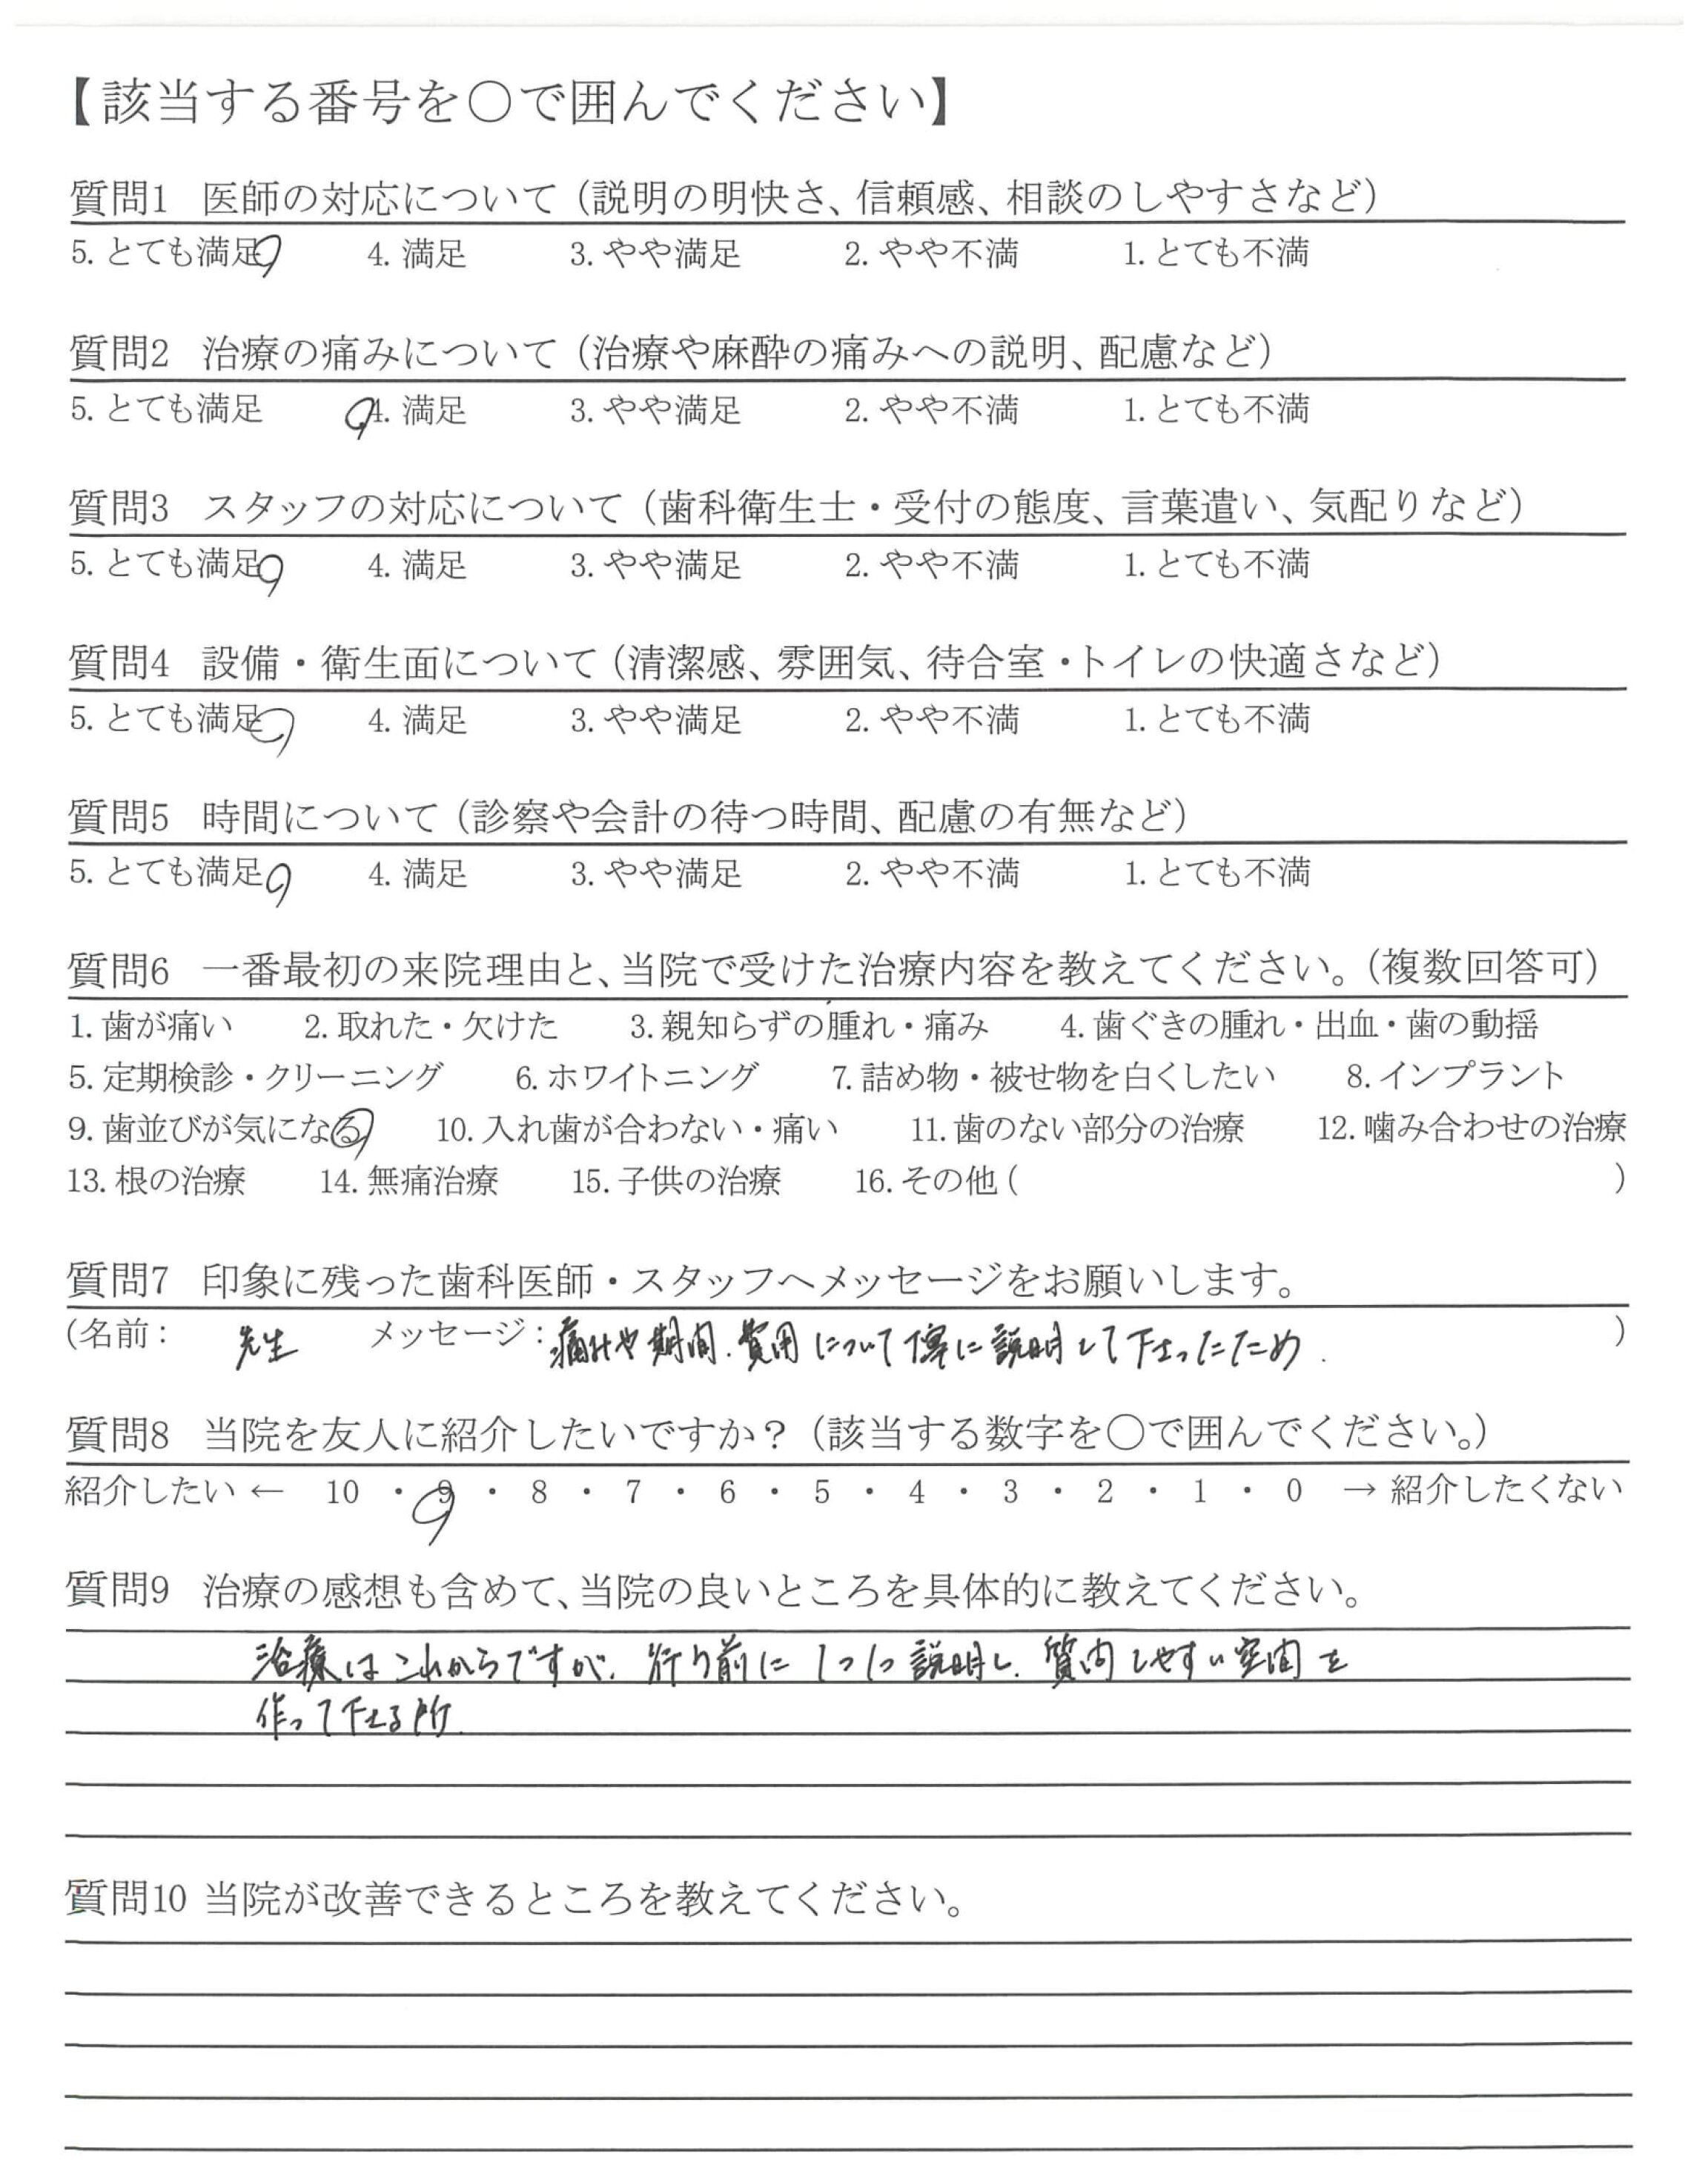 【該当する番号を○で囲んでください】
質問1 医師の対応について（説明の明快さ、信頼感、相談のしやすさなど）
5. とても満足 4. 満足 3. やや満足 2. やや不満 1. とても不満
質問2 治療の痛みについて（治療や麻酔の痛みへの説明、配慮など）
5. とても満足 4. 満足 3. やや満足 2. やや不満 1. とても不満
質問3 スタッフの対応について（歯科衛生士・受付の態度、言葉遣い、気配りなど）
5. とても満足 4. 満足 3. やや満足 2. やや不満 1. とても不満
質問4 設備・衛生面について（清潔感、雰囲気、待合室・トイレの快適さなど）
5. とても満足 4. 満足 3. やや満足 2. やや不満 1. とても不満
質問5 時間について（診察や会計の待つ時間、配慮の有無など）
5. とても満足 4. 満足 3. やや満足 2. やや不満 1. とても不満
質問6 一番最初の来院理由と、当院で受けた治療内容を教えてください。（複数回答可）
1. 歯が痛い 2. 取れた・欠けた 3. 親知らずの腫れ・痛み 4. 歯ぐきの腫れ・出血・歯の動揺
5. 定期検診・クリーニング 6. ホワイトニング 7. 詰め物・被せ物を白くしたい 8. インプラント
9. 歯並びが気になる 10. 入れ歯が合わない・痛い 11. 歯のない部分の治療 12. 噛み合わせの治療
13. 根の治療 14. 無痛治療 15. 子供の治療 16. その他（ ）
質問7 印象に残った歯科医師・スタッフへメッセージをお願いします。
（名前： 先生 メッセージ：痛みや期間、費用について に説明して下さったため. ）
質問8 当院を友人に紹介したいですか？（該当する数字を○で囲んでください。）
紹介したい ← 10 ・ 9 ・ 8 ・ 7 ・ 6 ・ 5 ・ 4 ・ 3 ・ 2 ・ 1 ・ 0 → 紹介したくない
質問9 治療の感想も含めて、当院の良いところを具体的に教えてください。
治療はこれからですが、行う前に1つ1つ説明し、質問しやすい空間を
作って下さる所.
質問10 当院が改善できるところを教えてください。